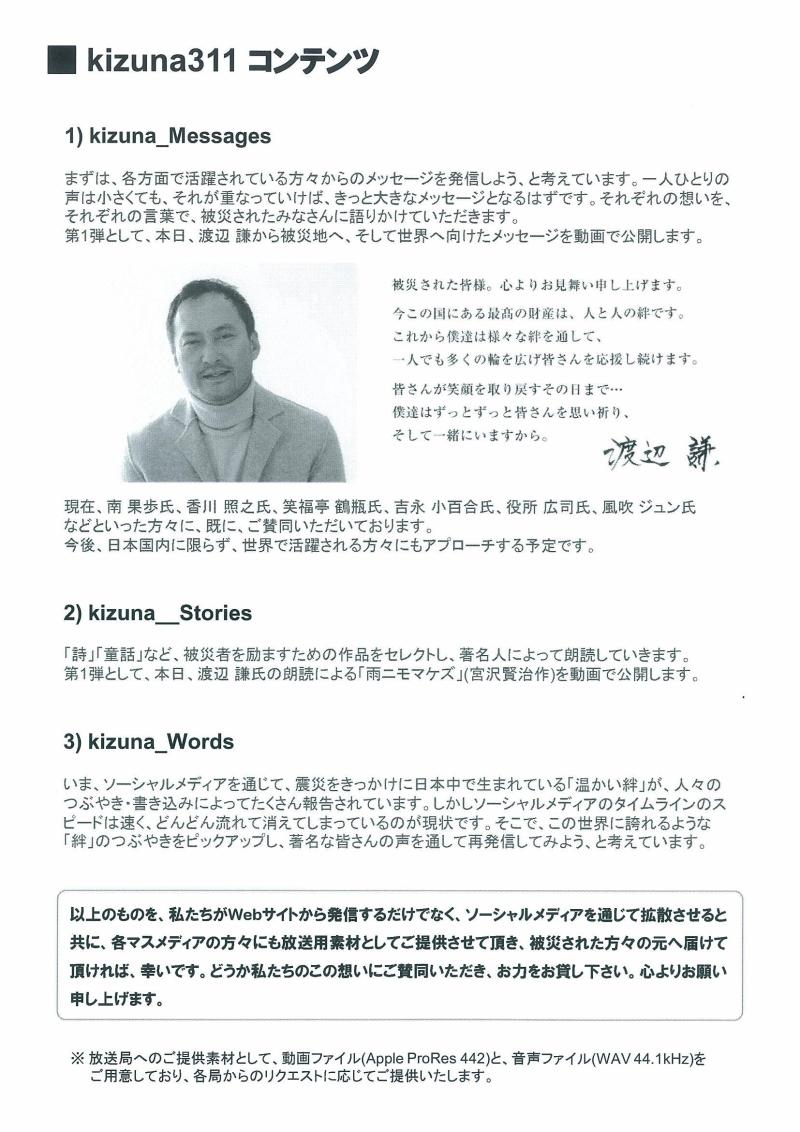 ■ kizuna311 コンテンツ
1) kizuna_Messages
まずは、各方面で活躍されている方々からのメッセージを発信しよう、と考えています。一人ひとりの
声は小さくても、それが重なっていけば、きっと大きなメッセージとなるはずです。それぞれの想いを、
それぞれの言葉で、被災されたみなさんに語りかけていただきます。
第1弾として、本日、渡辺 謙から被災地へ、そして世界へ向けたメッセージを動画で公開します。
被災された皆様。心よりお見舞い申し上げます。
今この国にある最高の財産は、人と人の絆です。
これから僕達は様々な絆を通して、
一人でも多くの輪を広げ皆さんを応援し続けます。
皆さんが笑顔を取り戻すその日まで…
僕達はずっとずっと皆さんを思い祈り、
そして一緒にいますから。
渡辺 謙.
現在、南 果歩氏、香川 照之氏、笑福亭 鶴瓶氏、吉永 小百合氏、役所 広司氏、風吹 ジュン氏
などといった方々に、既に、ご賛同いただいております。
今後、日本国内に限らず、世界で活躍される方々にもアプローチする予定です。
2) kizuna__Stories
「詩」「童話」など、被災者を励ますための作品をセレクトし、著名人によって朗読していきます。
第1弾として、本日、渡辺 謙氏の朗読による「雨ニモマケズ」(宮沢賢治作)を動画で公開します。
3) kizuna_Words
いま、ソーシャルメディアを通じて、震災をきっかけに日本中で生まれている「温かい絆」が、人々の
つぶやき・書き込みによってたくさん報告されています。しかしソーシャルメディアのタイムラインのス
ピードは速く、どんどん流れて消えてしまっているのが現状です。そこで、この世界に誇れるような
「絆」のつぶやきをピックアップし、著名な皆さんの声を通して再発信してみよう、と考えています。
以上のものを、私たちがWebサイトから発信するだけでなく、ソーシャルメディアを通じて拡散させると
共に、各マスメディアの方々にも放送用素材としてご提供させて頂き、被災された方々の元へ届けて
頂ければ、幸いです。どうか私たちのこの想いにご賛同いただき、お力をお貸し下さい。心よりお願い
申し上げます。
※ 放送局へのご提供素材として、動画ファイル(Apple ProRes 442)と、音声ファイル(WAV 44.1kHz)を
ご用意しており、各局からのリクエストに応じてご提供いたします。